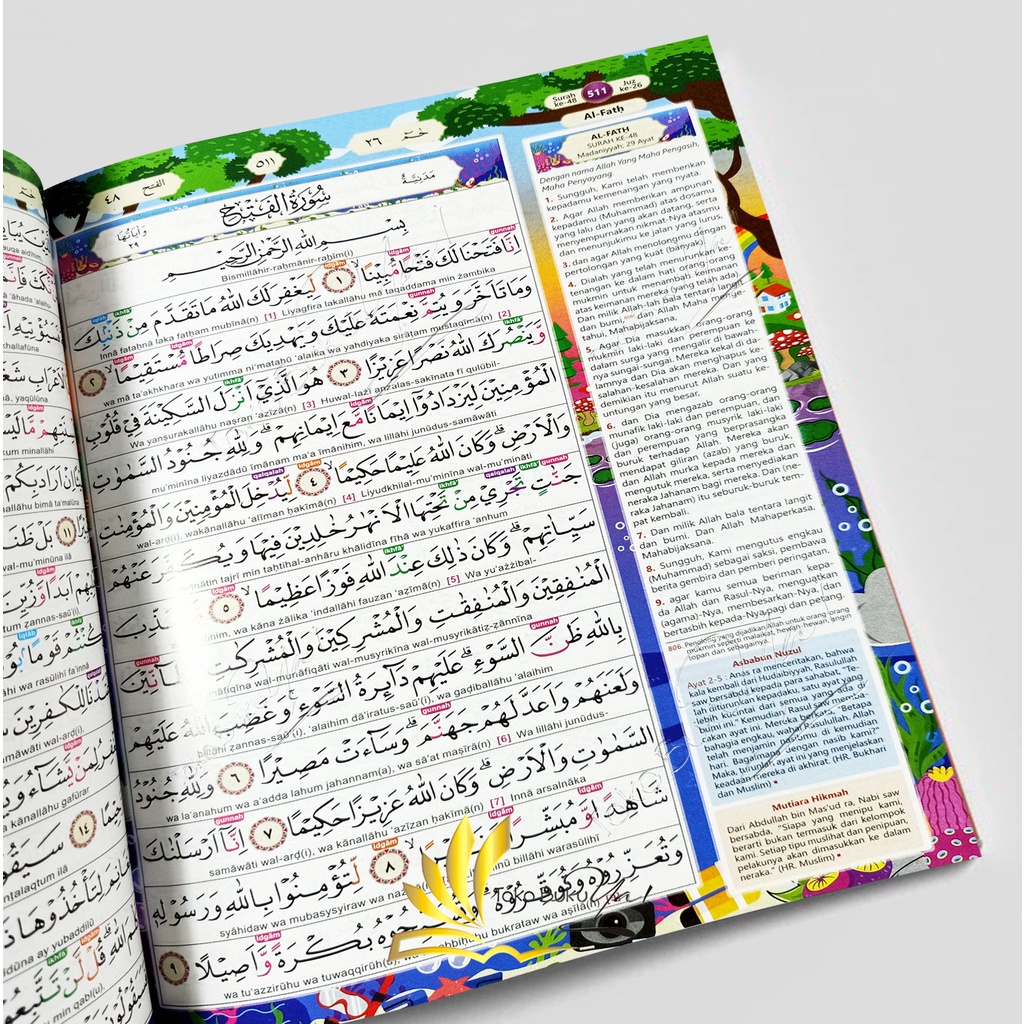 Surah ke-48
511
Juz ke-26
Al-Fatḥ
خُمُ ٢٦
٥١١
الفتح ٤٨
AL-FATH
SURAH KE-48
Madaniyyah; 29 Ayat
مَدَنِيَّةٌ
سُوْرَةُ الْفَتْحِ
وَاٰيَاتُهَا ٢٩
بِسْمِ اللّٰهِ الرَّحْمٰنِ الرَّحِيْمِ
Bismillāhir-raḥmānir-raḥīm(i)
اِنَّا فَتَحْنَا لَكَ فَتْحًا مُّبِيْنًا ۙ ١ لِّيَغْفِرَ لَكَ اللّٰهُ مَا تَقَدَّمَ مِنْ ذَنْۢبِكَ
Innā fataḥnā laka fatḥam mubīnā(n) [1] Liyagfira lakallāhu mā taqaddama min żambika
وَمَا تَاَخَّرَ وَيُتِمَّ نِعْمَتَهٗ عَلَيْكَ وَيَهْدِيَكَ صِرَاطًا مُّسْتَقِيْمًا ۙ ٢
wa mā ta'akhkhara wa yutimma ni'matahū 'alaika wa yahdiyaka ṣirāṭam mustaqīmā(n) [2]
وَّيَنْصُرَكَ اللّٰهُ نَصْرًا عَزِيْزًا ٣ هُوَ الَّذِيْٓ اَنْزَلَ السَّكِيْنَةَ فِيْ قُلُوْبِ
Wa yanṣurakallāhu naṣran 'azīzā(n) [3] Huwal-lażī anzalas-sakīnata fī qulūbil-
الْمُؤْمِنِيْنَ لِيَزْدَادُوْٓا اِيْمَانًا مَّعَ اِيْمَانِهِمْ ۗ وَلِلّٰهِ جُنُوْدُ السَّمٰوٰتِ
mu'minīna liyazdādū īmānam ma'a īmānihim, wa lillāhi junūdus-samāwāti
وَالْاَرْضِ ۗ وَكَانَ اللّٰهُ عَلِيْمًا حَكِيْمًا ۙ ٤ لِّيُدْخِلَ الْمُؤْمِنِيْنَ وَالْمُؤْمِنٰتِ
wal-arḍ(i), wakānallāhu 'alīman ḥakīmā(n) [4] Liyudkhilal-mu'minīna wal-mu'mināti
جَنّٰتٍ تَجْرِيْ مِنْ تَحْتِهَا الْاَنْهٰرُ خٰلِدِيْنَ فِيْهَا وَيُكَفِّرَ عَنْهُمْ
jannātin tajrī min taḥtihal-anhāru khālidīna fīhā wa yukaffira 'anhum
سَيِّاٰتِهِمْ ۗ وَكَانَ ذٰلِكَ عِنْدَ اللّٰهِ فَوْزًا عَظِيْمًا ۙ ٥ وَّيُعَذِّبَ
wa kāna żālika 'indallāhi fauzan 'aẓīmā(n) [5] Wa yu'ażżibal-
الْمُنٰفِقِيْنَ وَالْمُنٰفِقٰتِ وَالْمُشْرِكِيْنَ وَالْمُشْرِكٰتِ الظَّاۤنِّيْنَ
munāfiqīna wal-munāfiqāti wal-musyrikīna wal-musyrikātiẓ-ẓānnīna
بِاللّٰهِ ظَنَّ السَّوْءِ ۗ عَلَيْهِمْ دَاۤىِٕرَةُ السَّوْءِ ۚ وَغَضِبَ اللّٰهُ عَلَيْهِمْ
billāhi ẓannas-sau'(i), 'alaihim dā'iratus-sau'(i), wa gaḍiballāhu 'alaihim
وَلَعَنَهُمْ وَاَعَدَّ لَهُمْ جَهَنَّمَ ۗ وَسَاۤءَتْ مَصِيْرًا ٦ وَلِلّٰهِ جُنُوْدُ
wa la'anahum wa a'adda lahum jahannam(a), wa sā'at maṣīrā(n) [6] Wa lillāhi junūdus-
السَّمٰوٰتِ وَالْاَرْضِ ۗ وَكَانَ اللّٰهُ عَزِيْزًا حَكِيْمًا ٧ اِنَّآ اَرْسَلْنٰكَ
samāwāti wal-arḍ(i), wa kānallāhu 'azīzan ḥakīmā(n) [7] Innā arsalnāka
شَاهِدًا وَّمُبَشِّرًا ٨ لِّتُؤْمِنُوْا بِاللّٰهِ وَرَسُوْلِهٖ
syāhidaw wa mubasysyiraw wa billāhi warasūlihī
وَتُعَزِّرُوْهُ بُكْرَةً وَّاَصِيْلًا ٩
wa tu'azzirūhu wa tuwaqqirūh(u), bukrataw wa aṣīlā(n)
Dengan nama Allah Yang Maha Pengasih,
Maha Penyayang.
1. Sungguh, Kami telah memberikan
kepadamu kemenangan yang nyata.
2. Agar Allah memberikan ampunan
kepadamu (Muhammad) atas dosamu
yang lalu dan yang akan datang, serta
menyempurnakan nikmat-Nya atasmu
dan menunjukimu ke jalan yang lurus,
3. dan agar Allah menolongmu dengan
pertolongan yang kuat (banyak).
4. Dialah yang telah menurunkan ke-
tenangan ke dalam hati orang-orang
mukmin untuk menambah keimanan
atas keimanan mereka (yang telah ada).
Dan milik Allah-lah bala tentara langit
dan bumi, dan Allah Maha Menge-
tahui, Mahabijaksana.
5. Agar Dia masukkan orang-orang
mukmin laki-laki dan perempuan ke
dalam surga yang mengalir di bawah-
nya sungai-sungai. Mereka kekal di da-
lamnya dan Dia akan menghapus ke-
salahan-kesalahan mereka. Dan yang
demikian itu menurut Allah suatu ke-
untungan yang besar,
6. dan Dia mengazab orang-orang
munafik laki-laki dan perempuan, dan
(juga) orang-orang musyrik laki-laki
dan perempuan yang berprasangka
buruk terhadap Allah. Mereka akan
mendapat giliran (azab) yang buruk,
dan Allah murka kepada mereka dan
mengutuk mereka, serta menyediakan
neraka Jahanam bagi mereka. Dan (ne-
raka Jahanam) itu seburuk-buruk tem-
pat kembali.
7. Dan milik Allah bala tentara langit
dan bumi. Dan Allah Mahaperkasa,
Mahabijaksana.
8. Sungguh, Kami mengutus engkau
(Muhammad) sebagai saksi, pembawa
berita gembira dan pemberi peringatan,
9. agar kamu semua beriman kepa-
da Allah dan Rasul-Nya, menguatkan
(agama)-Nya, membesarkan-Nya, dan
bertasbih kepada-Nya pagi dan petang.
806. Penolong yang dijadikan Allah untuk orang-orang
mukmin seperti malaikat, hewan-hewan, angin
topan dan sebagainya.
Asbabun Nuzul
Ayat 2-5 : Anas ra menceritakan, bahwa
kala kembali dari Hudaibiyyah, Rasulullah
saw bersabda kepada para sahabat, "Te-
lah diturunkan kepadaku, satu ayat yang
lebih kucintai dari semua yang ada di
bumi ini." Kemudian, Rasul saw memba-
cakan ayat ini. Mereka berkata, "Betapa
bahagia engkau, wahai Rasulullah. Allah
telah menjamin nasibmu di kemudian
hari. Bagaimana dengan nasib kami?"
Maka, turunlah ayat ini yang menjelaskan
keadaan mereka di akhirat. (HR. Bukhari
dan Muslim)
Mutiara Hikmah
Dari Abdullah bin Mas'ud ra, Nabi saw
bersabda, "Siapa yang menipu kami,
berarti bukan termasuk dari kelompok
kami. Setiap tipu muslihat dan penipuan,
pelakunya akan dimasukkan ke dalam
neraka." (HR. Muslim)
TOKO BUKU